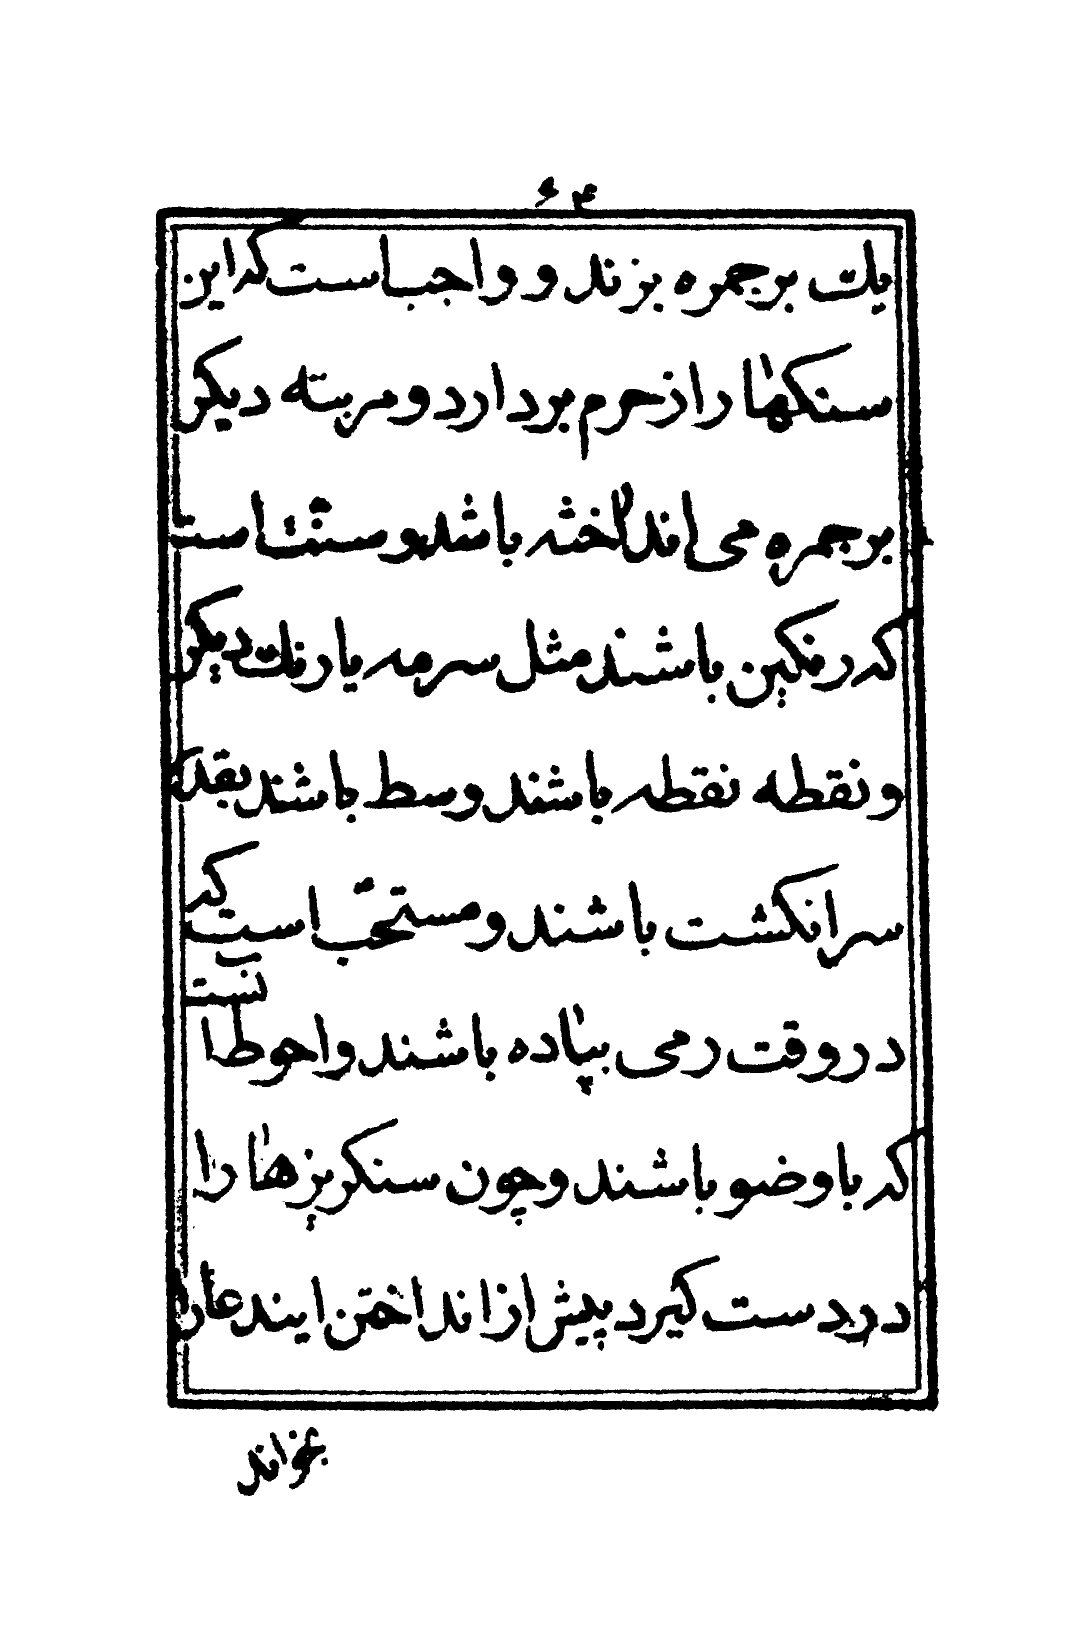 ۶۴
یك برجمره بزند و واجب است که این
سنکهٰا را از حرم بردارد و مرتبته دیکر
برجمره می انداخته باشد و سنّت است
که رنکین باشند مثل سرمه یا رنك دیکر
و نقطه نقطه باشند وسط باشند بقدر
سر انکشت باشند و مستحبّ است که
در وقت رمی پیٰاده باشند و احوط آنست
که با وضو باشند و چون سنکریزهٰا را
در دست کیرد پیش از انداختن این دعا را
بخواند